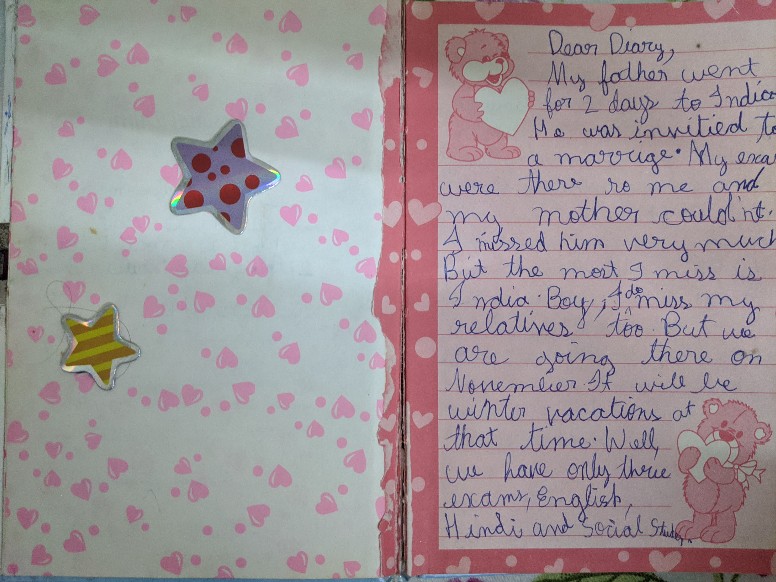 Dear Diary,
My father went
for 2 days to India
He was invitied to
a marrige. My exa
were there so me and
my mother could'nt.
I missed him very much
But the most I miss is
India. Boy, I do miss my
relatives too. But we
are going there on
November. It will be
winter vacations at
that time. Well,
we have only three
exams, English,
Hindi and Social